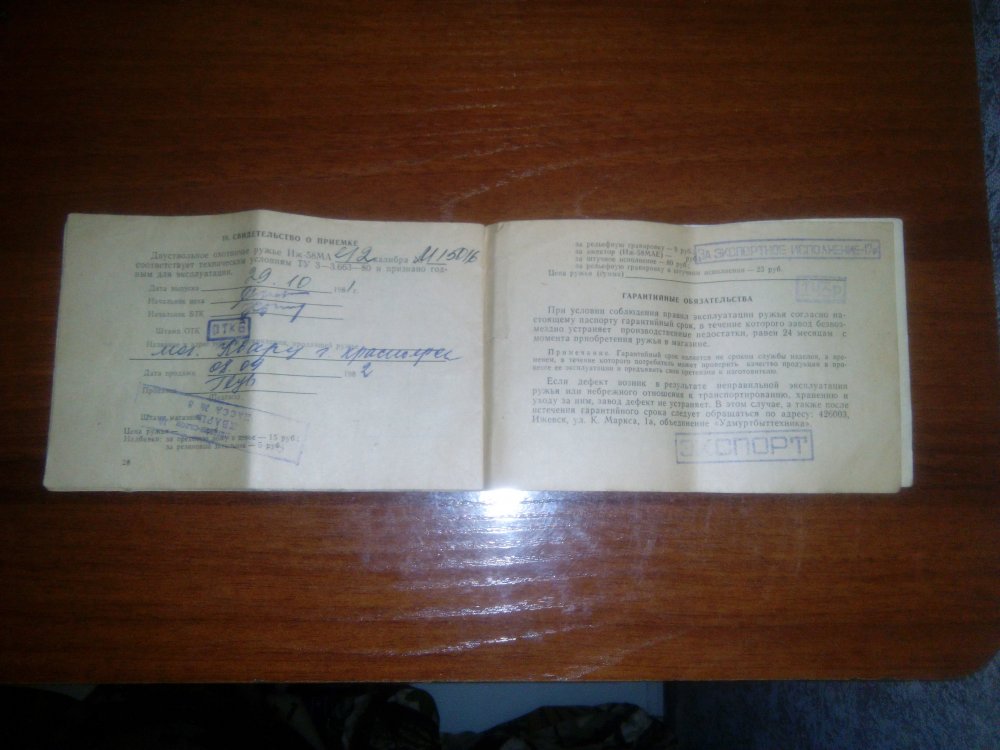 11. СВИДЕТЕЛЬСТВО О ПРИЕМКЕ
Двуствольное охотничье ружье Иж-58МА 12 калибра
соответствует техническим условиям ТУ 3—3.663—80 и признано год-
ным для эксплуатации.
Дата выпуска 29. 10 1981 г.
Начальник цеха
Начальник БТК
Штамп ОТК ОТК 9
маг. Кварц г. Красноярск
Дата продажи 08 09 1982
Штамп магазина
Цена ружья
Надбавки: за — 15 руб;
за резиновый затыльник — 5 руб.
28
за рельефную гравировку — 8 руб.
за эжектор (Иж-58МАЕ) —
за штучное исполнение — 60 руб.
за рельефную гравировку и штучное исполнение — 23 руб.
Цена ружья (сумма)
ЗА ЭКСПОРТНОЕ ИСПОЛНЕНИЕ
ГАРАНТИЙНЫЕ ОБЯЗАТЕЛЬСТВА
При условии соблюдения правил эксплуатации ружья согласно на-
стоящему паспорту гарантийный срок, в течение которого завод безвоз-
мездно устраняет производственные недостатки, равен 24 месяцам с
момента приобретения ружья в магазине.
Примечание. Гарантийный срок является не сроком службы изделия, а вре-
менем, в течение которого потребитель может проверить качество продукции в про-
цессе ее эксплуатации и предъявить свои претензии к изготовителю.
Если дефект возник в результате неправильной эксплуатации
ружья или небрежного отношения к транспортированию, хранению и
уходу за ним, завод дефект не устраняет. В этом случае, а также после
истечения гарантийного срока следует обращаться по адресу: 426003,
Ижевск, ул. К. Маркса, 1а, объединение «Удмуртбыттехника».
ЭКСПОРТ